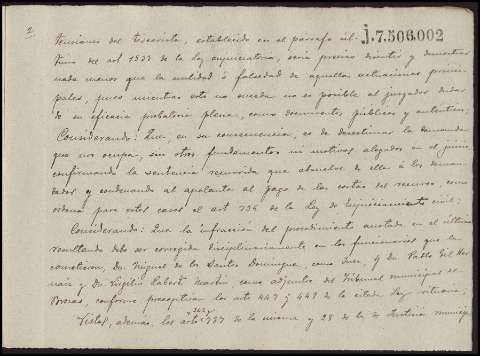 2
J.7.506.002
tensiones del tercerista, establecido en el párrafo úl-
timo del art 1533 de la Ley enjuiciatoria, sería preciso discutir y demostrar
nada menos que la nulidad ó falsedad de aquellas actuaciones princi-
pales; pues mientras esto no suceda no es posible al juzgador dudar
de su eficacia probatoria plena, como documentos públicos y auténticos.
Considerando: Que, en su consecuencia, es de desestimar la demanda
que nos ocupa, sin otros fundamentos ni motivos alegados en el juicio
confirmando la sentencia recurrida que absuelve de ella á los deman-
dados y condenando al apelante al pago de las costas del recurso, como
ordena para estos casos el art 736 de la Ley de Enjuiciamiento civil;
Considerando: Que la infracción del procedimiento anotada en el último
resultando debe ser corregida disciplinariamente en los funcionarios que la
cometieron, Dn. Miguel de los Santos Domingue, como Juez, y Dn. Pablo Gil Her
nan y Dn. Martin, como adjuntos del Tribunal municipal de
conforme preceptúan los arts 447 y 449 de la citada Ley rituaria.
y 362
Vistos, además, los arts 737 de la misma y 28 de la de Justicia municip